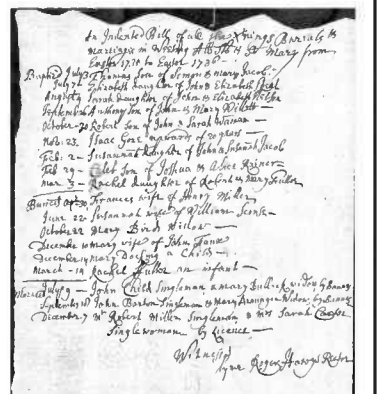 An Indented Bill of all the Xnings Burials &
Marriages in Weeting All Sts & St Mary from
Easter 1735 to Easter 1736
Baptizd July 3 Thomas Son of & Mary Jacob
July 7 Elizabeth daughter of John & Elizabeth
August Sarah daughter of John & Elizabeth
September Anthony Son of John & Mary Willett
October 20 Robert Son of John & Sarah
Nov: 23. Isaac Gore upwards of 20 years
Feb: 2 Susannah daughter of John & Susannah Jacob
Feb 29 Son of Joshua & Alice
Mar 3 Rachel daughter of Robert & Mary Fuller
Buried 30 Frances wife of Henry Miller
June 22 Susannah wife of William
October 22 Mary Bird Widow
December 10 Mary wife of John
December 19 Mary a Child
March 19 Rachel Fuller an infant
Married July 9 John Child Singleman & Mary widow by Banns
September John Barton Singleman & Mary Widow by Banns
December 7 Mr Robert Millen Singleman & Mrs Sarah
Singlewoman by Licence
Witness
Roger Rector